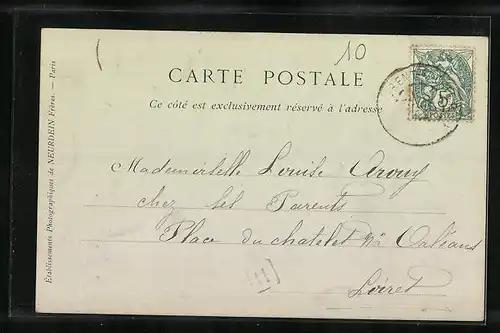 10
CARTE POSTALE
Ce côté est exclusivement réservé à l'adresse
Mademoiselle Louise
chez ses Parents
Place du chatelet Orléans
Loiret
Établissements Photographiques de NEURDEIN Frères. — Paris
5
POSTES